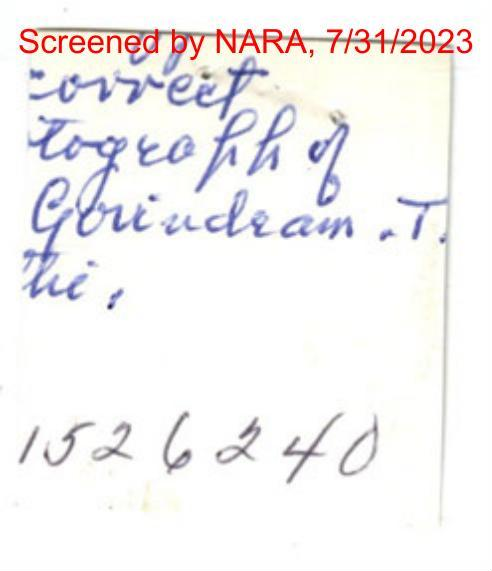 Screened by NARA, 7/31/2023
correct
tograph of
Govindram .T.
1526240